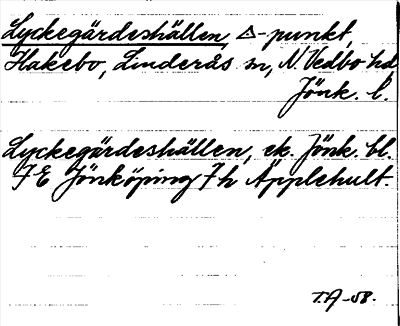 Lyckegärdeshällen, △-punkt,
Hakebo, Linderås sn, N. Vedbo hd,
Jönk. l.
Lyckegärdeshällen, ek. Jönk. bl.
7 E Jönköping 7 h Äpplehult.
T.A-58.